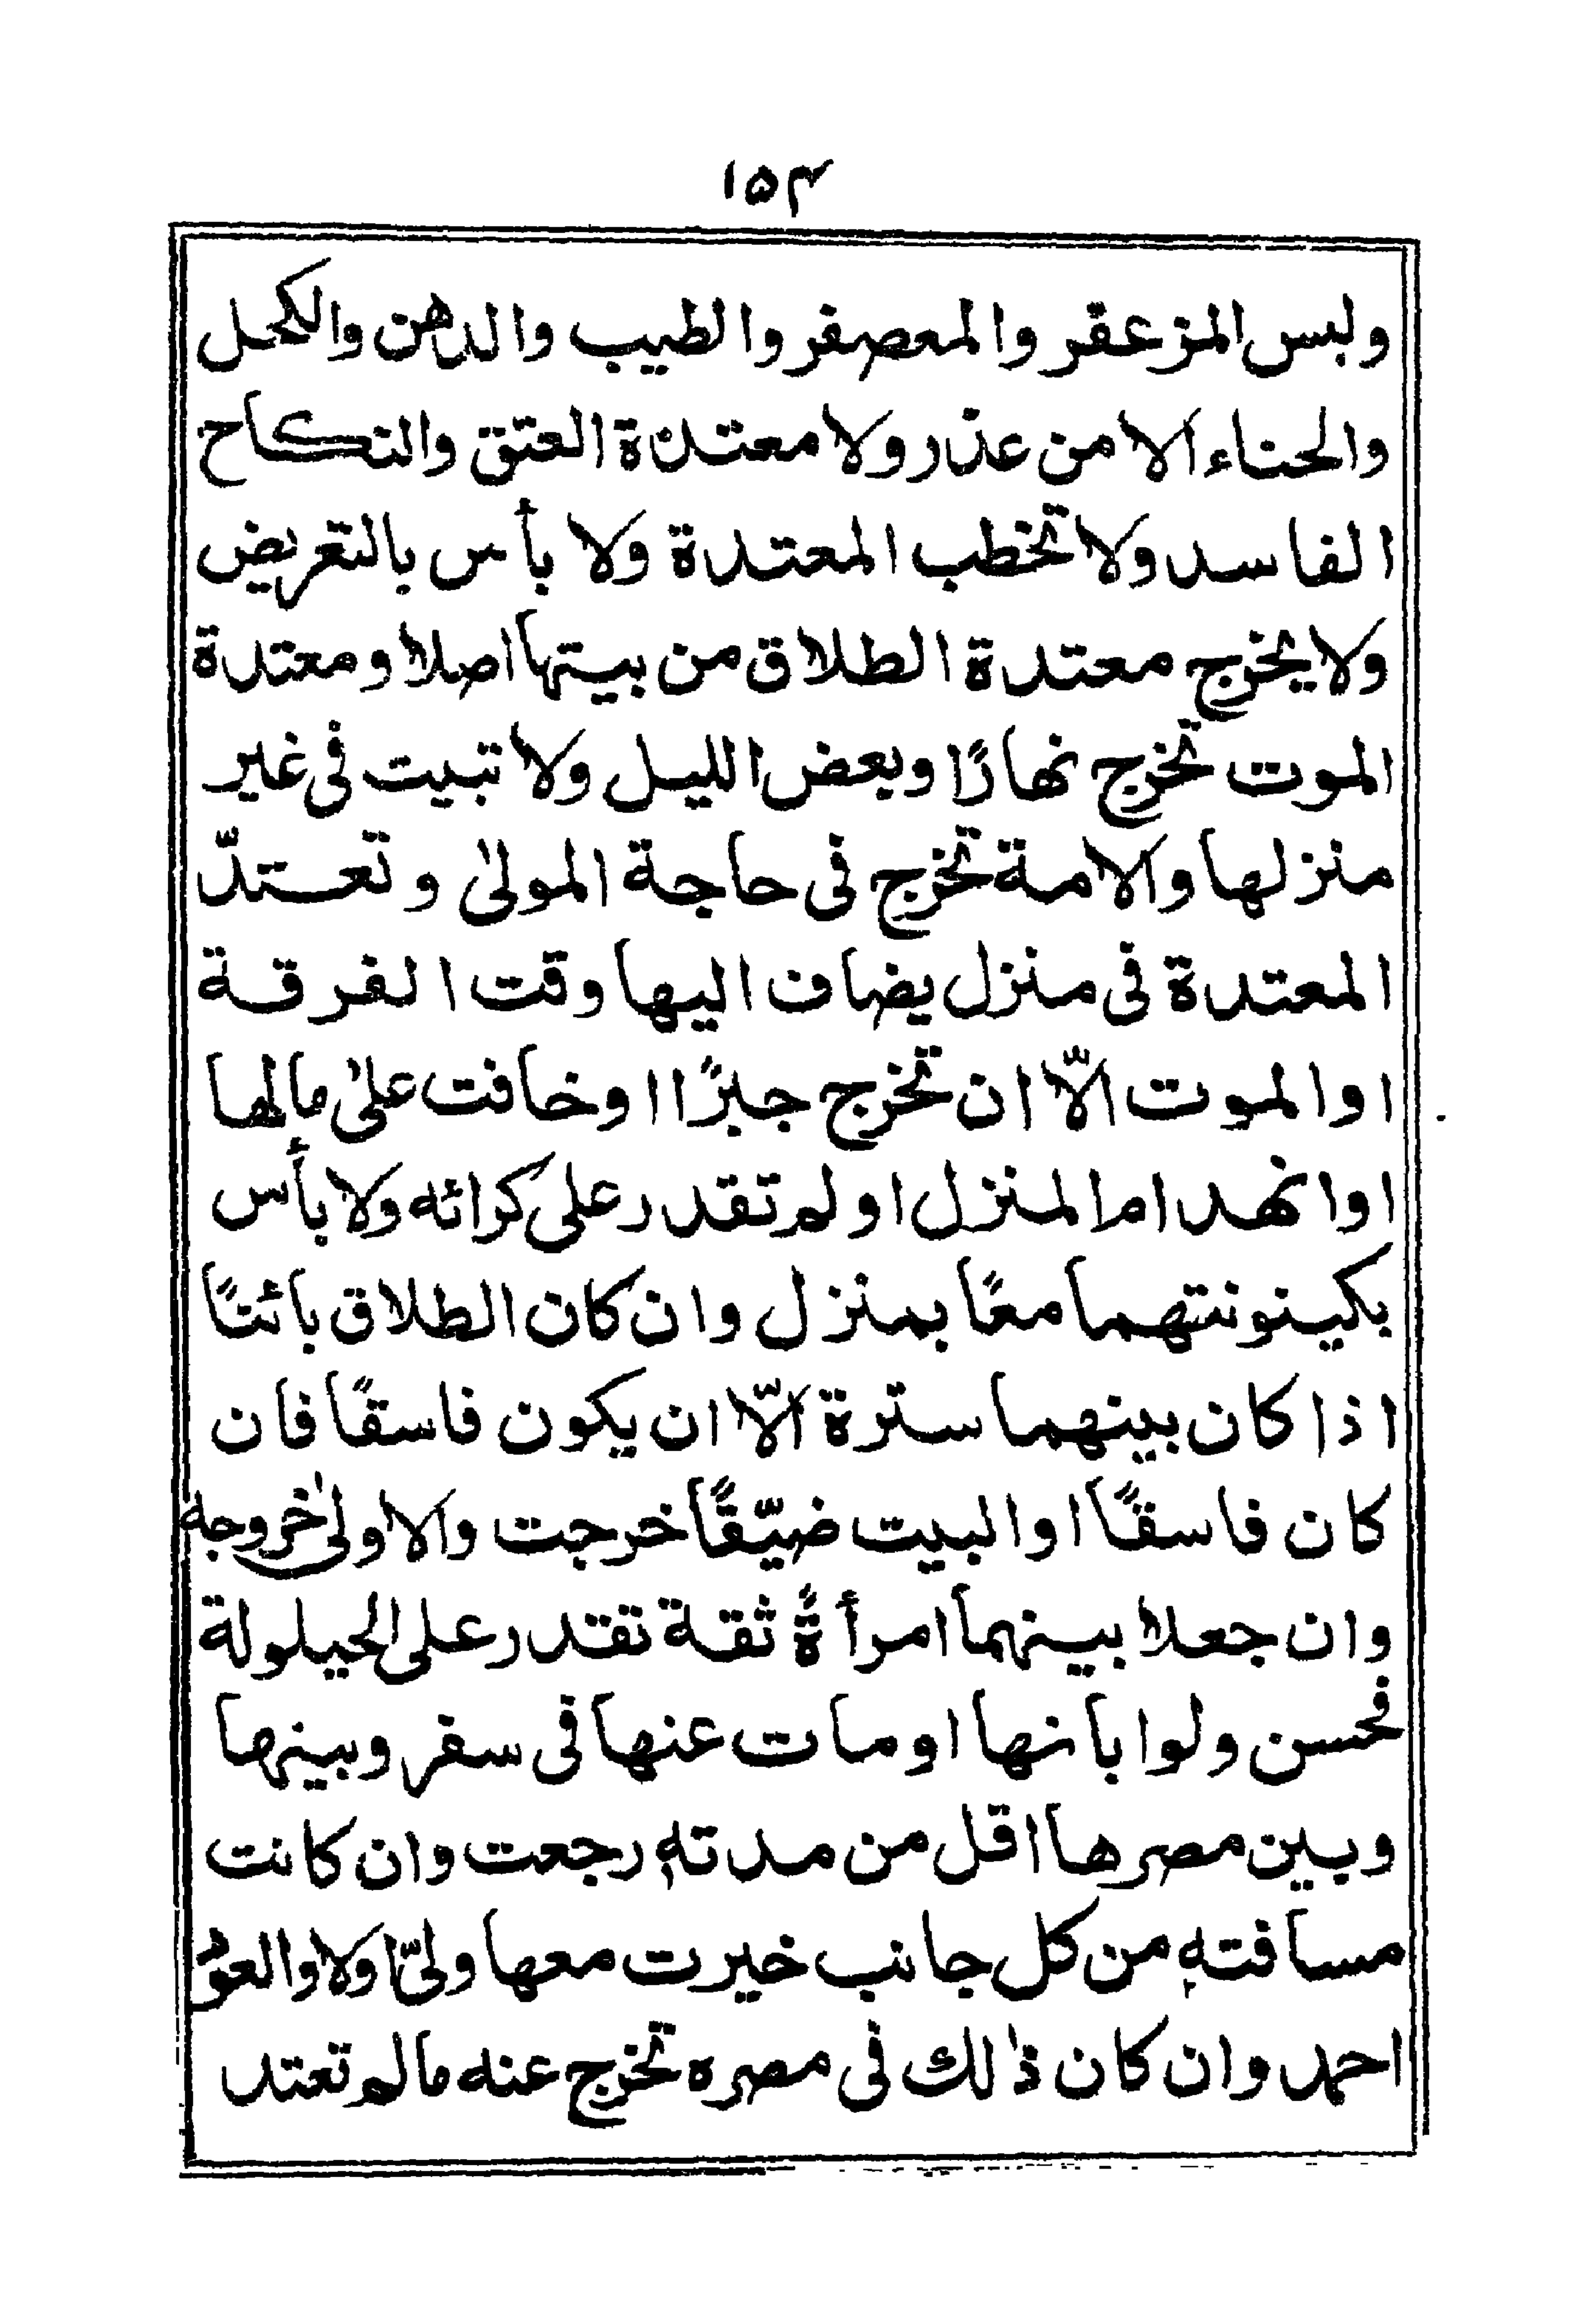 ۱۵۴
ولبس المزعفر والمعصفر والطيب والدهن والكحل
والحناء الا من عذر ولا معتدة العتق والنكاح
الفاسد ولا تخطب المعتدة ولا بأس بالتعريض
ولا يخرج معتدة الطلاق من بيتها اصلا ومعتدة
الموت تخرج نهارًا وبعض الليل ولا تبيت فى غير
منزلها والامة تخرج فى حاجة المولىٰ وتعتدّ
المعتدة فى منزل يضاف اليها وقت الفرقة
او الموت الّا ان تخرج جبرًا او خافت علىٰ مالها
او انهدام المنزل او لم تقدر على كرائه ولا بأس
بكينونتهما معًا بمنزل وان كان الطلاق بائنًا
اذا كان بينهما سترة الّا ان يكون فاسقًا فان
كان فاسقًا او البيت ضيّقًا خرجت والاولىٰ خروجه
وان جعلا بينهما امرأةً ثقة تقدر على الحيلولة
فحسن ولو ابانها او مات عنها فى سفر وبينها
وبين مصرها اقل من مدته رجعت وان كانت
مسافته من كل جانب خيرت معها ولىّ اولا والعود
احمد وان كان ذٰلك فى مصره تخرج عنه مالم تعتد